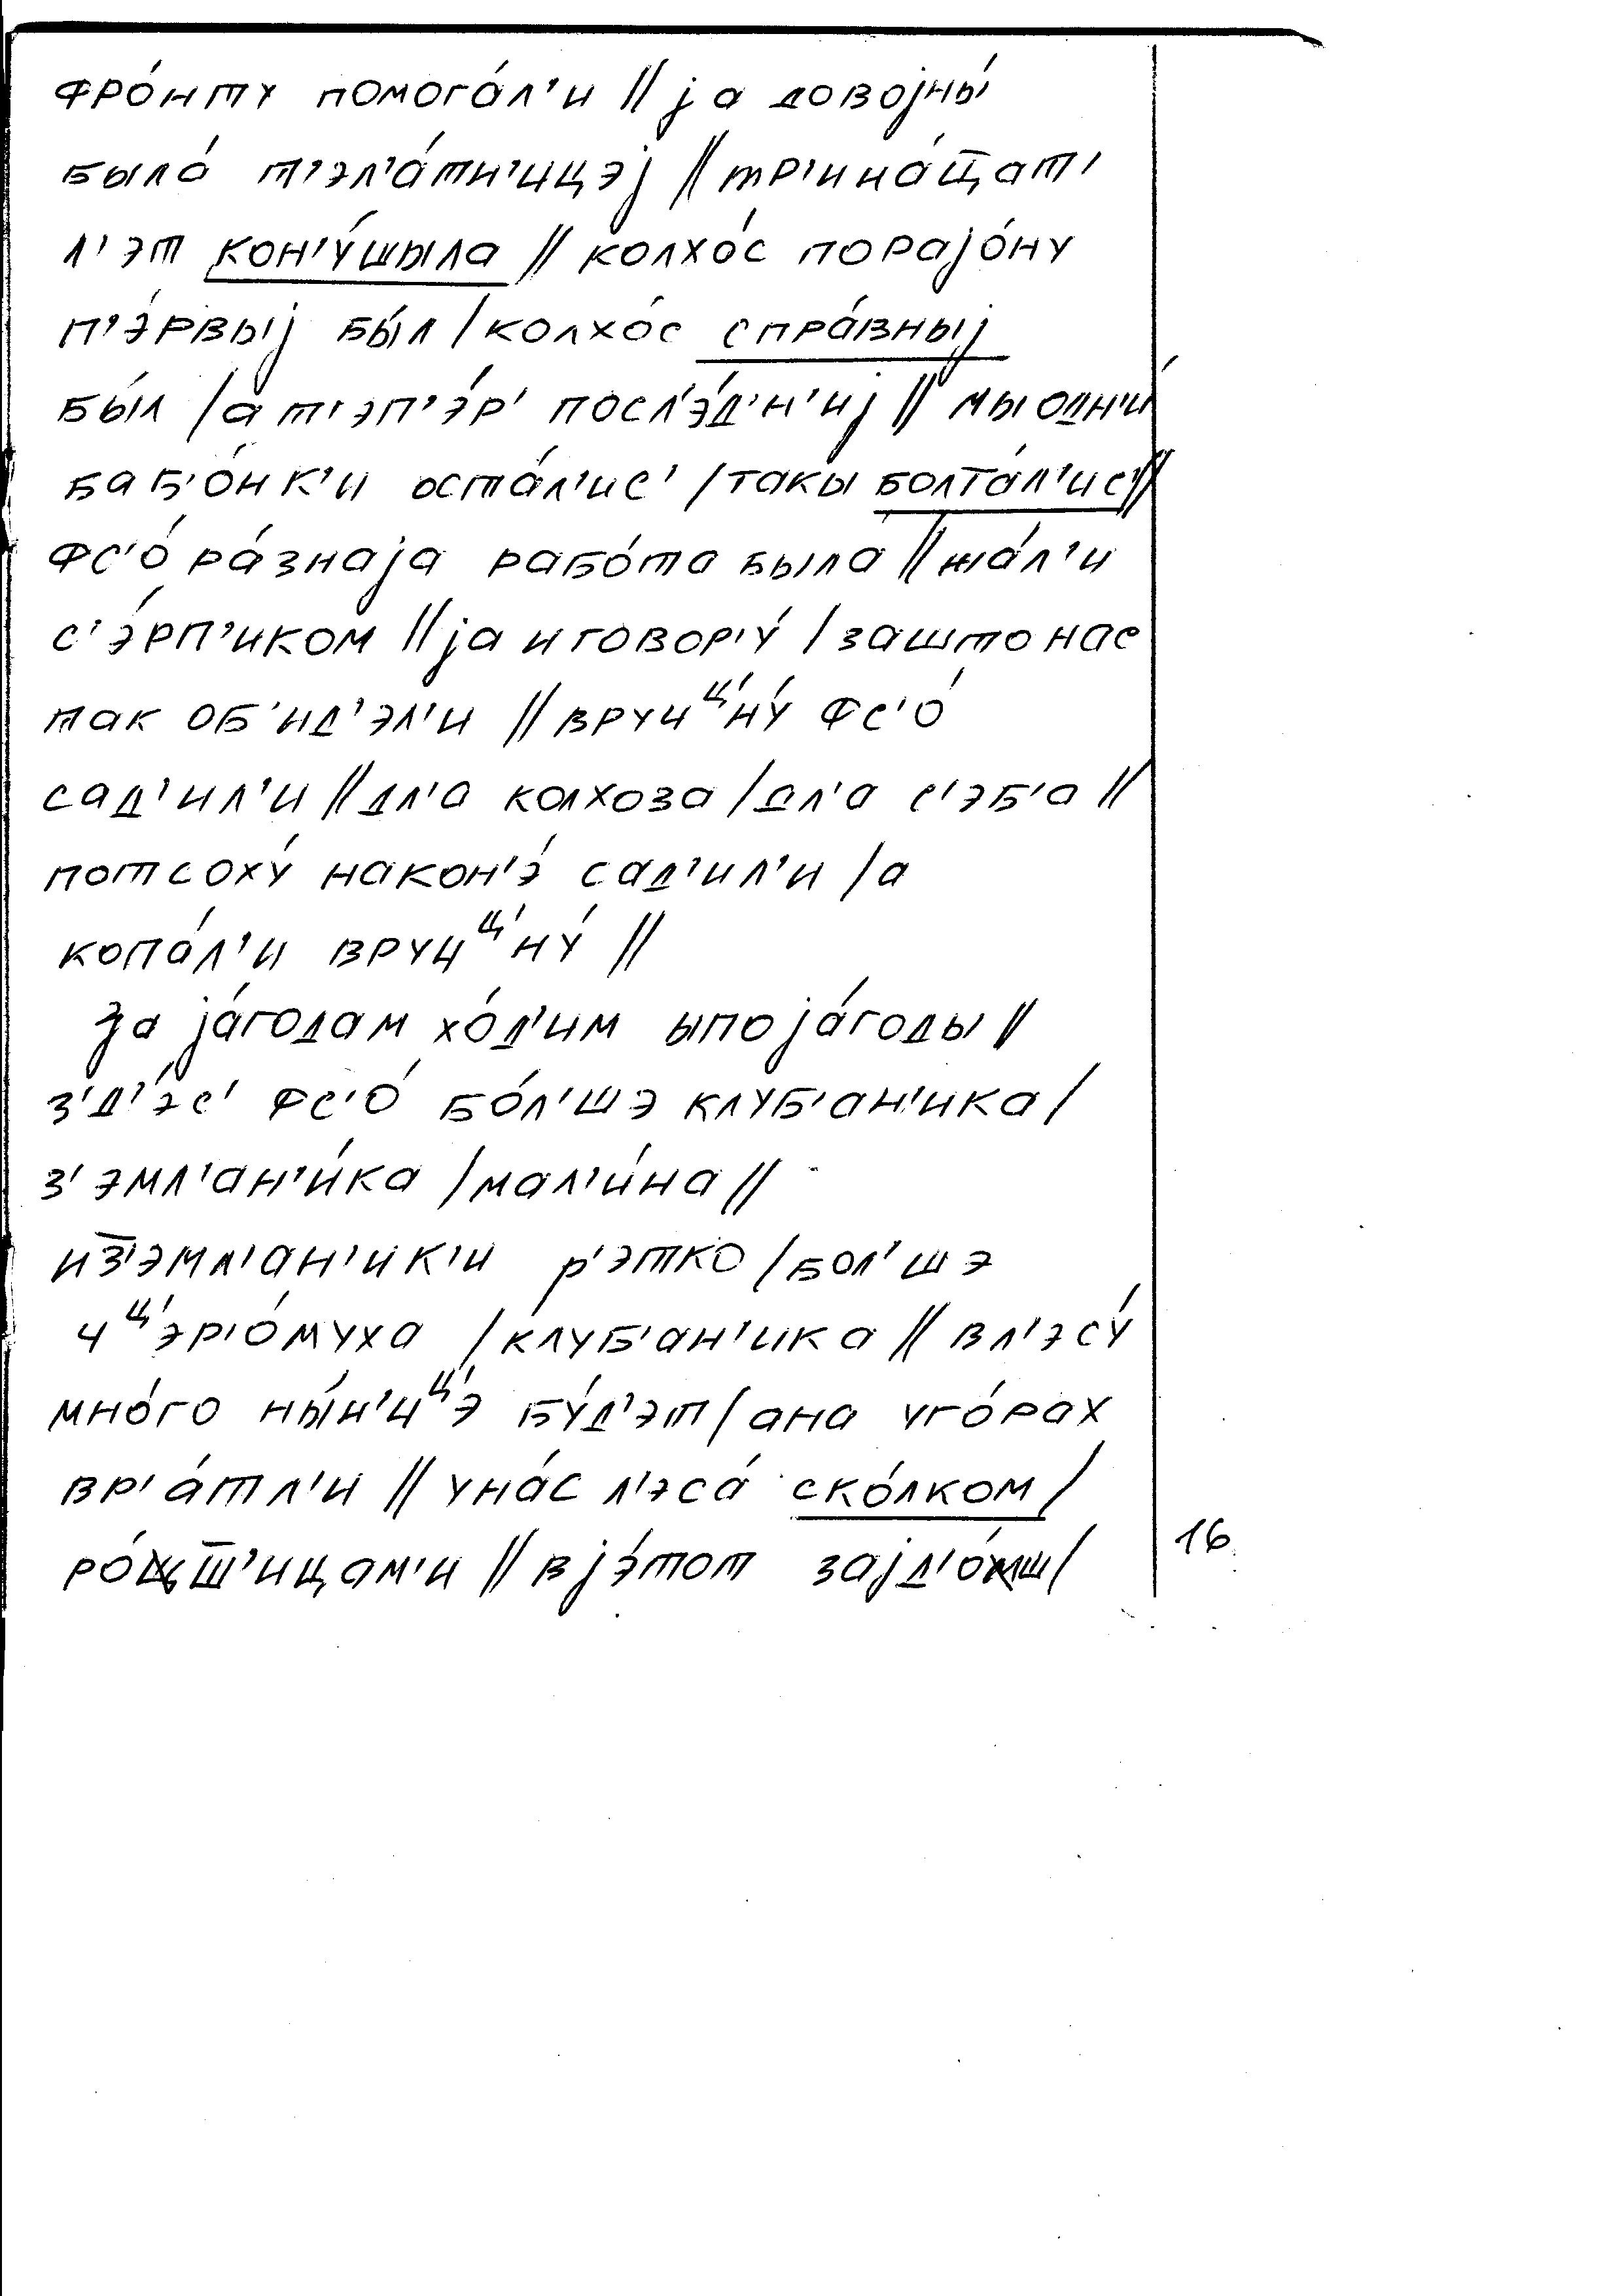 фро́нту помога́л'и // ја довојны́
была́ т'эл'а́тн'ицэј // тр'ина́ц̅ат'
л'эт кон'у́шыла // колхо́с порајо́ну
п'э́рвыј бы́л / колхо́с спра́вныј
бы́л / а т'эп'э́р' посл'э́д'н'иј // мы одн'и́
баб'о́нк'и оста́л'ис' / такы́ болта́л'ис' //
фс'о́ ра́знаја рабо́та была // жа́л'и
с'э́рп'иком // ја и говор'у́ / зашто нас
так об'ид'эл'и // вручᶣ'ну́ фс'о́
сад'ил'и // дл'а колхоза / дл'а с'эб'а //
потсоху́ након'э́ сад'ил'и / а
копа́л'и вручᶣ'ну́ //
За ја́годам хо́д'им ыпоја́годы //
з'д'э́с' фс'о́ бо́л'шэ клуб'ан'ика /
з'эмл'ан'и́ка / мал'и́на //
из̅'эмл'ан'ик'и р'этко / бол'шэ
чᶣ'эр'о́муха / клуб'ан'ика // вл'эсу́
мно́го ны́н'чᶣ'э бу́д'эт / ана уго́рах
вр'а́тл'и // уна́с л'эса́ ско́лком /
ро́ш̅'ицам'и // вјэ́тот зајд'о́ш /
16